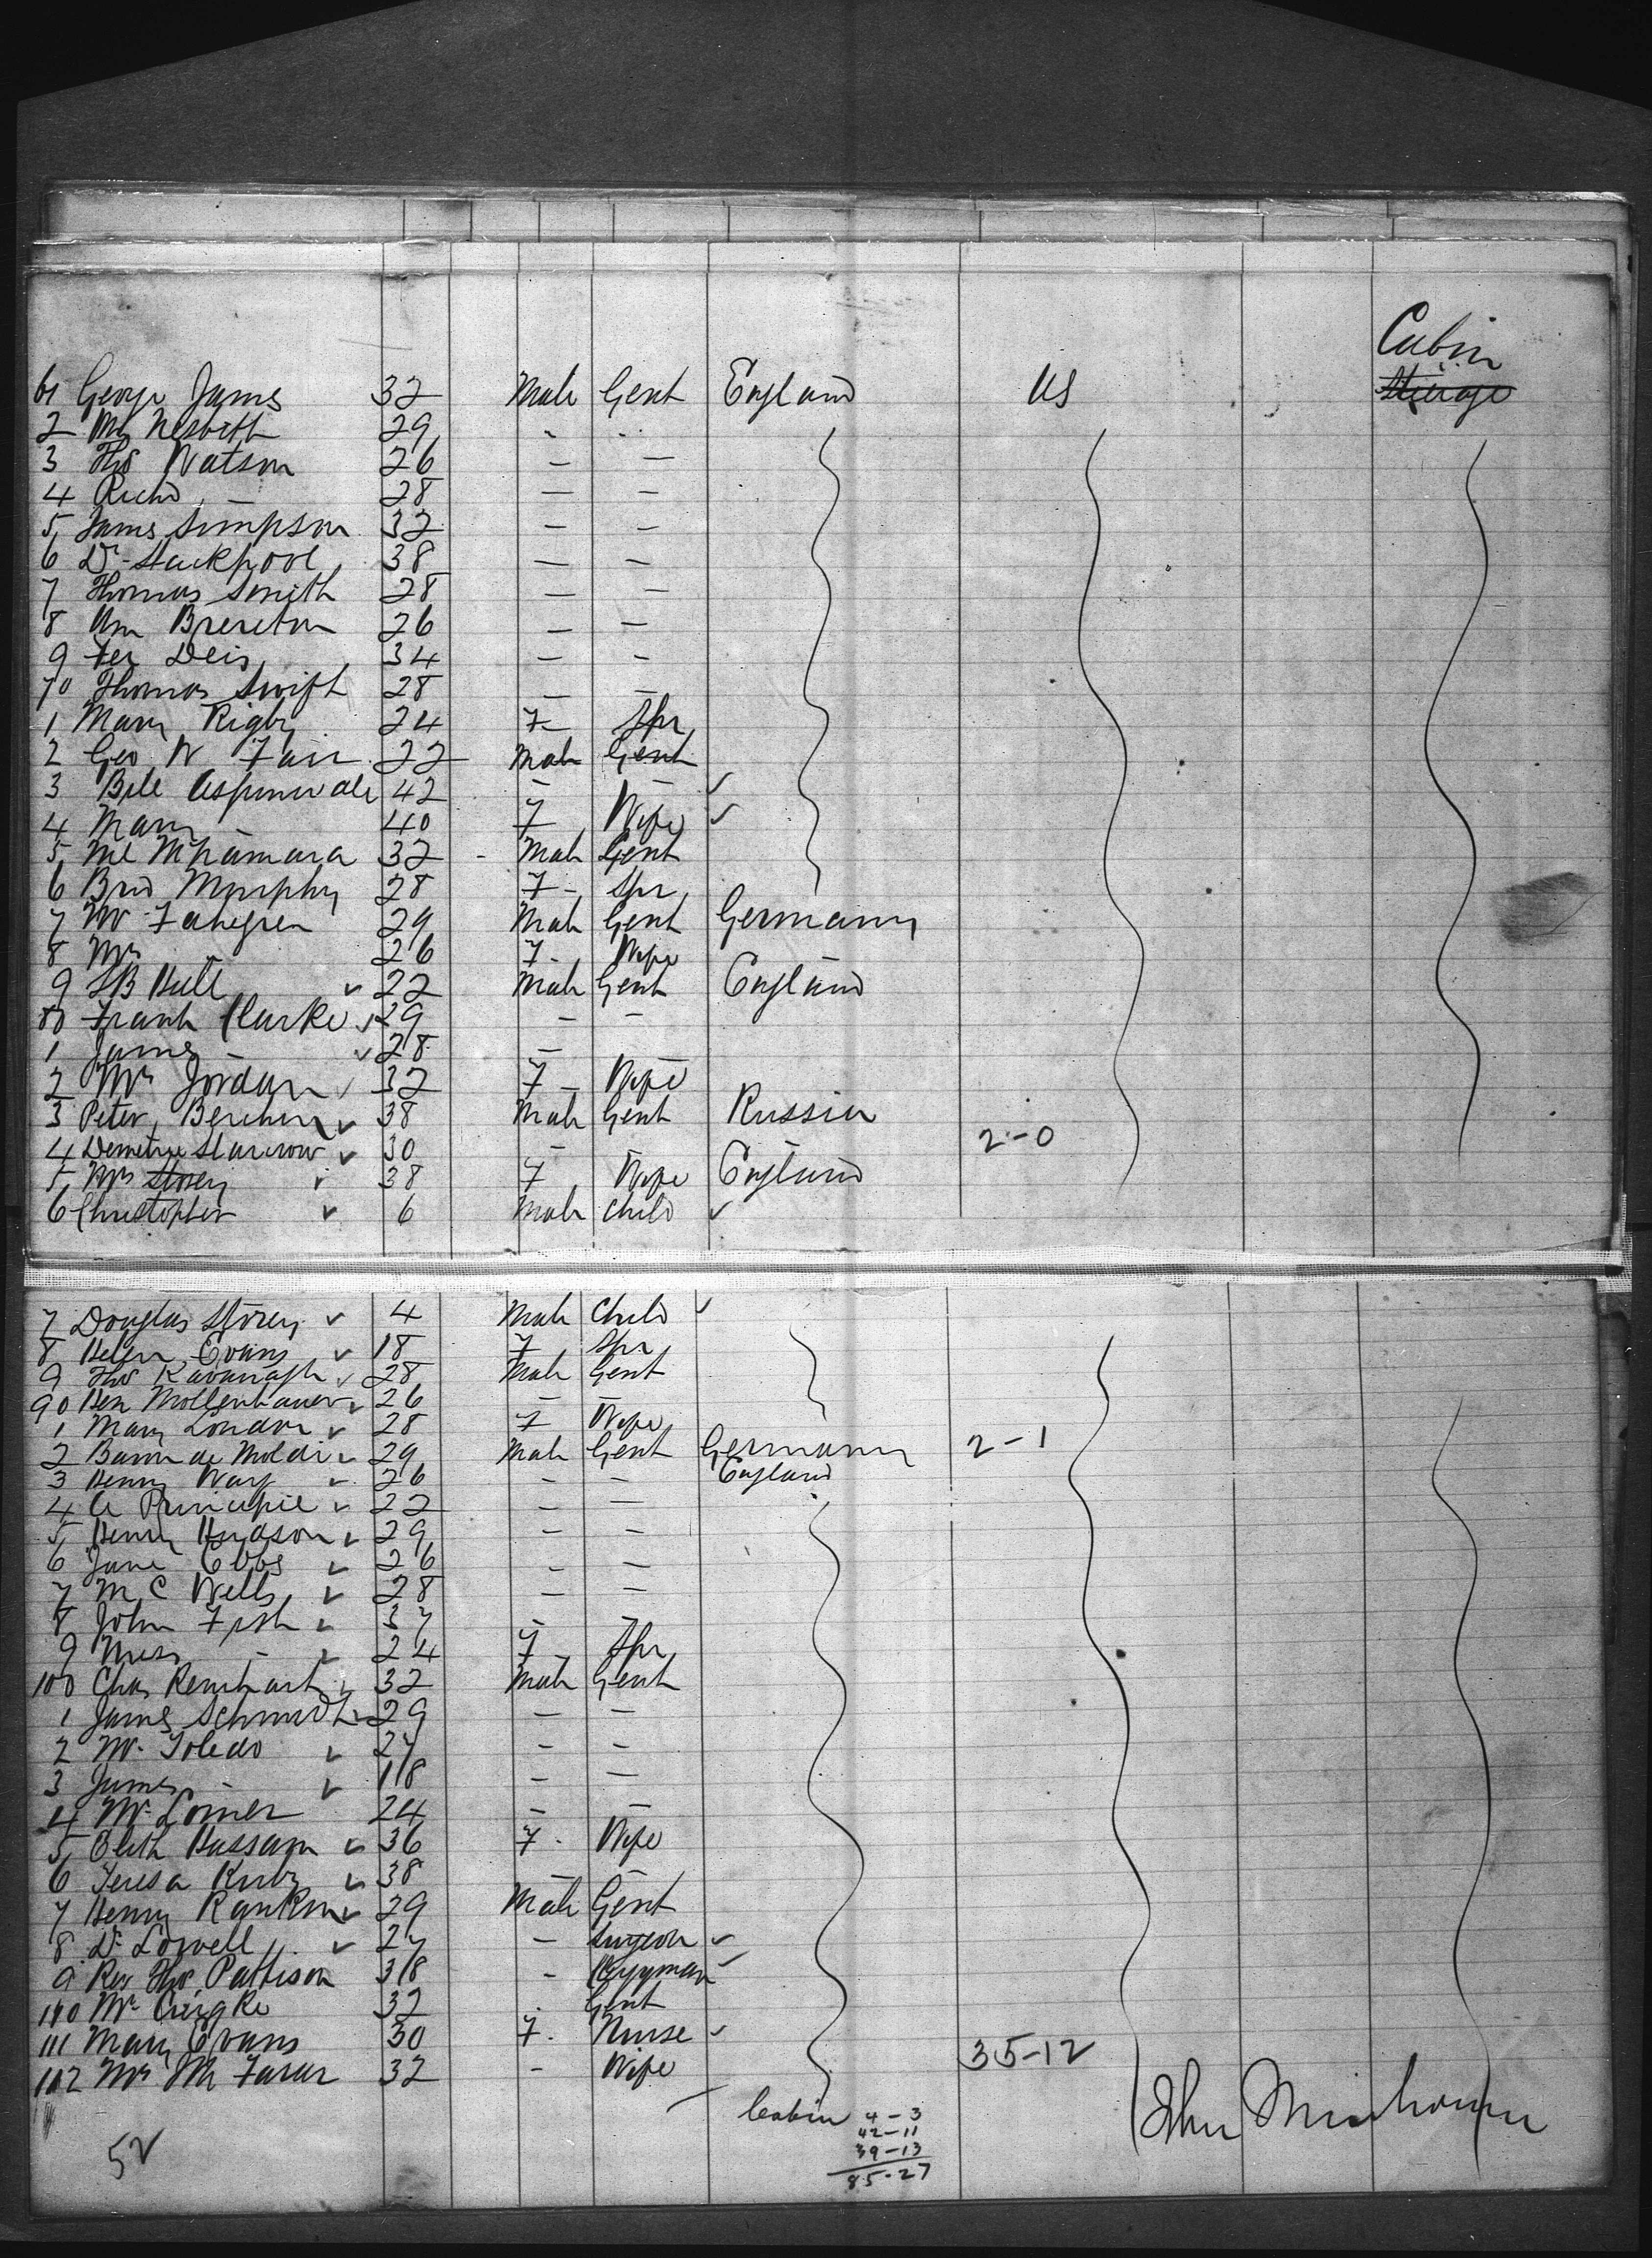 Cabin
61 George James 32 Male Gent England US Steerage
2 Mr Nesbitt 29 - -
3 Thos Watson 26 - -
4 Richd - 28 - -
5 James Simpson 32 - -
6 Dr Stackpool 38 - -
7 Thomas Smith 28 - -
8 Wm Brereton 26 - -
9 34 - -
70 Thomas Swift 28 - -
1 Mary Rigby 24 F - Spr
2 Geo W Fair 22 Male Gent
3 Aspinwall 42 - - ✓
4 Mary - 40 F Wife ✓
5 Ml McNamara 32 - Male Gent
6 Brid Murphy 28 F - Spr
7 Mr 29 Male Gent Germany
8 Mrs - 26 F - Wife
9 Hull ✓ 22 Male Gent England
80 Frank Clarke ✓ 29 - -
1 James - ✓ 28 - -
2 Mrs Jordan ✓ 32 F - Wife
3 Peter ✓ 38 Male Gent Russia
4 ✓ 30 - - - 2-0
5 Mrs Storey ✓ 38 F Wife England
6 Christopher ✓ 6 Male Child ✓
7 Douglas Storey ✓ 4 Male Child ✓
8 Helen Evans ✓ 18 F Spr
9 Thos Kavanagh ✓ 28 Male Gent
90 Hen Mollenhauer ✓ 26 - -
1 Mary London ✓ 28 F Wife
2 Baron de ✓ 29 Male Gent Germany 2-1
3 Henry Way ✓ 26 - - England
4 ✓ 22 - -
5 Henry Hudson ✓ 29 - -
6 Jane ✓ 26 - -
7 M C Wells ✓ 28 - -
8 John Fish ✓ 37 - -
9 Miss - ✓ 24 F - Spr
100 Chas Reinhart ✓ 32 Male Gent
1 James Schmidt ✓ 29 - -
2 Mr Toledo ✓ 27 - -
3 James - ✓ 18 - -
4 Mr 24 - -
5 Hassam ✓ 36 F - Wife
6 Teresa ✓ 38 - -
7 Henry Rankin ✓ 29 Male Gent
8 Dr Lowell ✓ 27 - Surgeon ✓
9 Rev Thos Pattison 38 - Clergyman ✓
110 Mr 32 - Gent
111 Mary Evans 30 F - Nurse ✓
112 Mrs 32 - Wife 35-12
Cabin 4-3
42-11
39-13
85-27
52
John